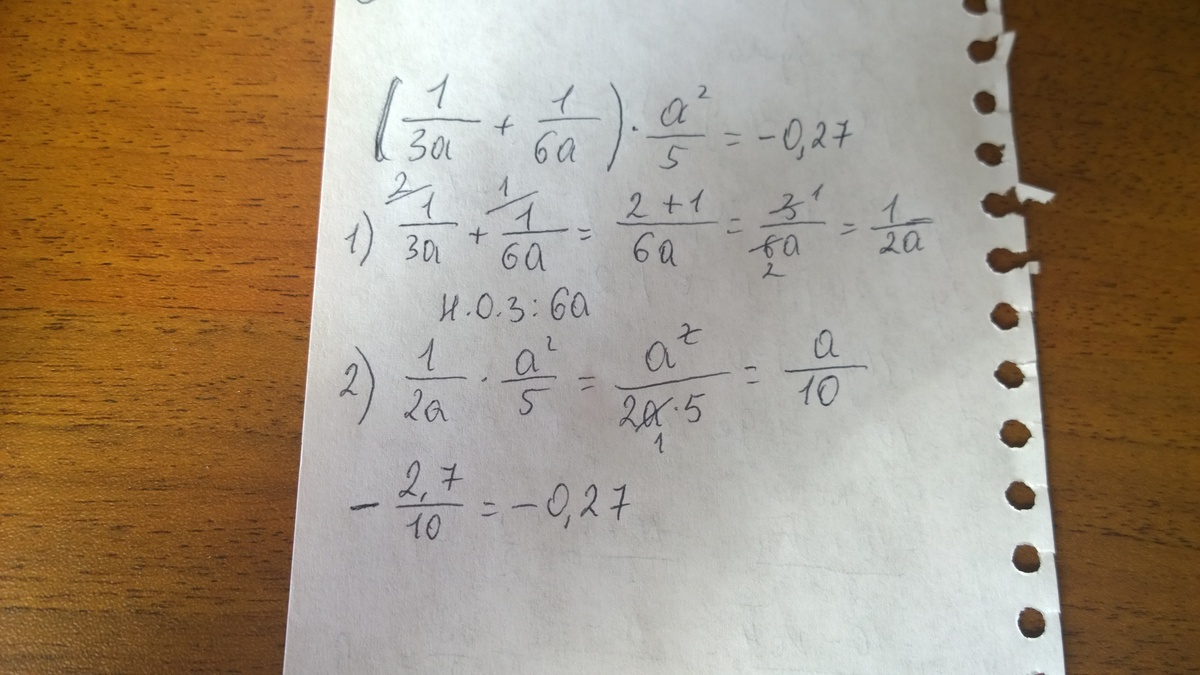 (1/3a + 1/6a) · a²/5 = -0,27
1) ²⁄ 1/3a + ¹⁄ 1/6a = 2+1/6a = 3 1/6a 2 = 1/2a
Н.О.З: 6a
2) 1/2a · a²/5 = a²/2a·5 1 = a/10
- 2,7/10 = -0,27